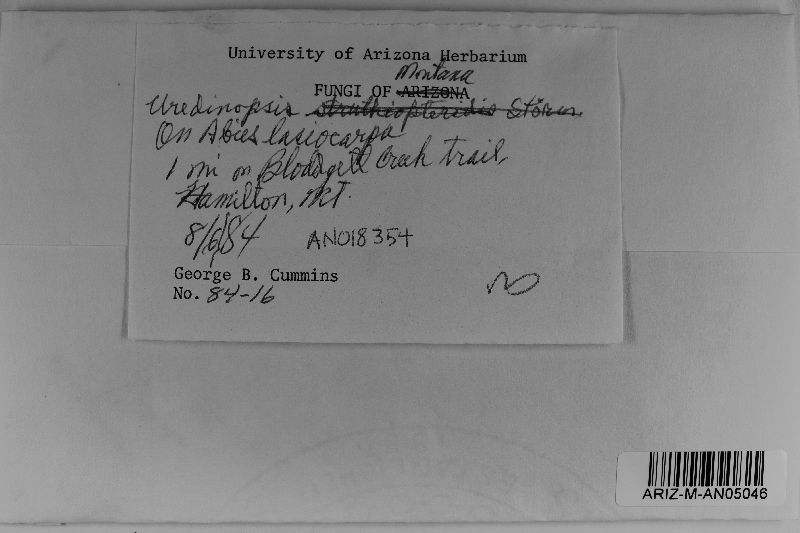 University of Arizona Herbarium
Montana
FUNGI OF ARIZONA
Uredinopsis struthiopteridis Störmer
On Abies lasiocarpa
1 mi on Blodgett Creek trail,
Hamilton, MT.
8/6/84 AN018354
George B. Cummins
No. 84-16
ARIZ-M-AN05046